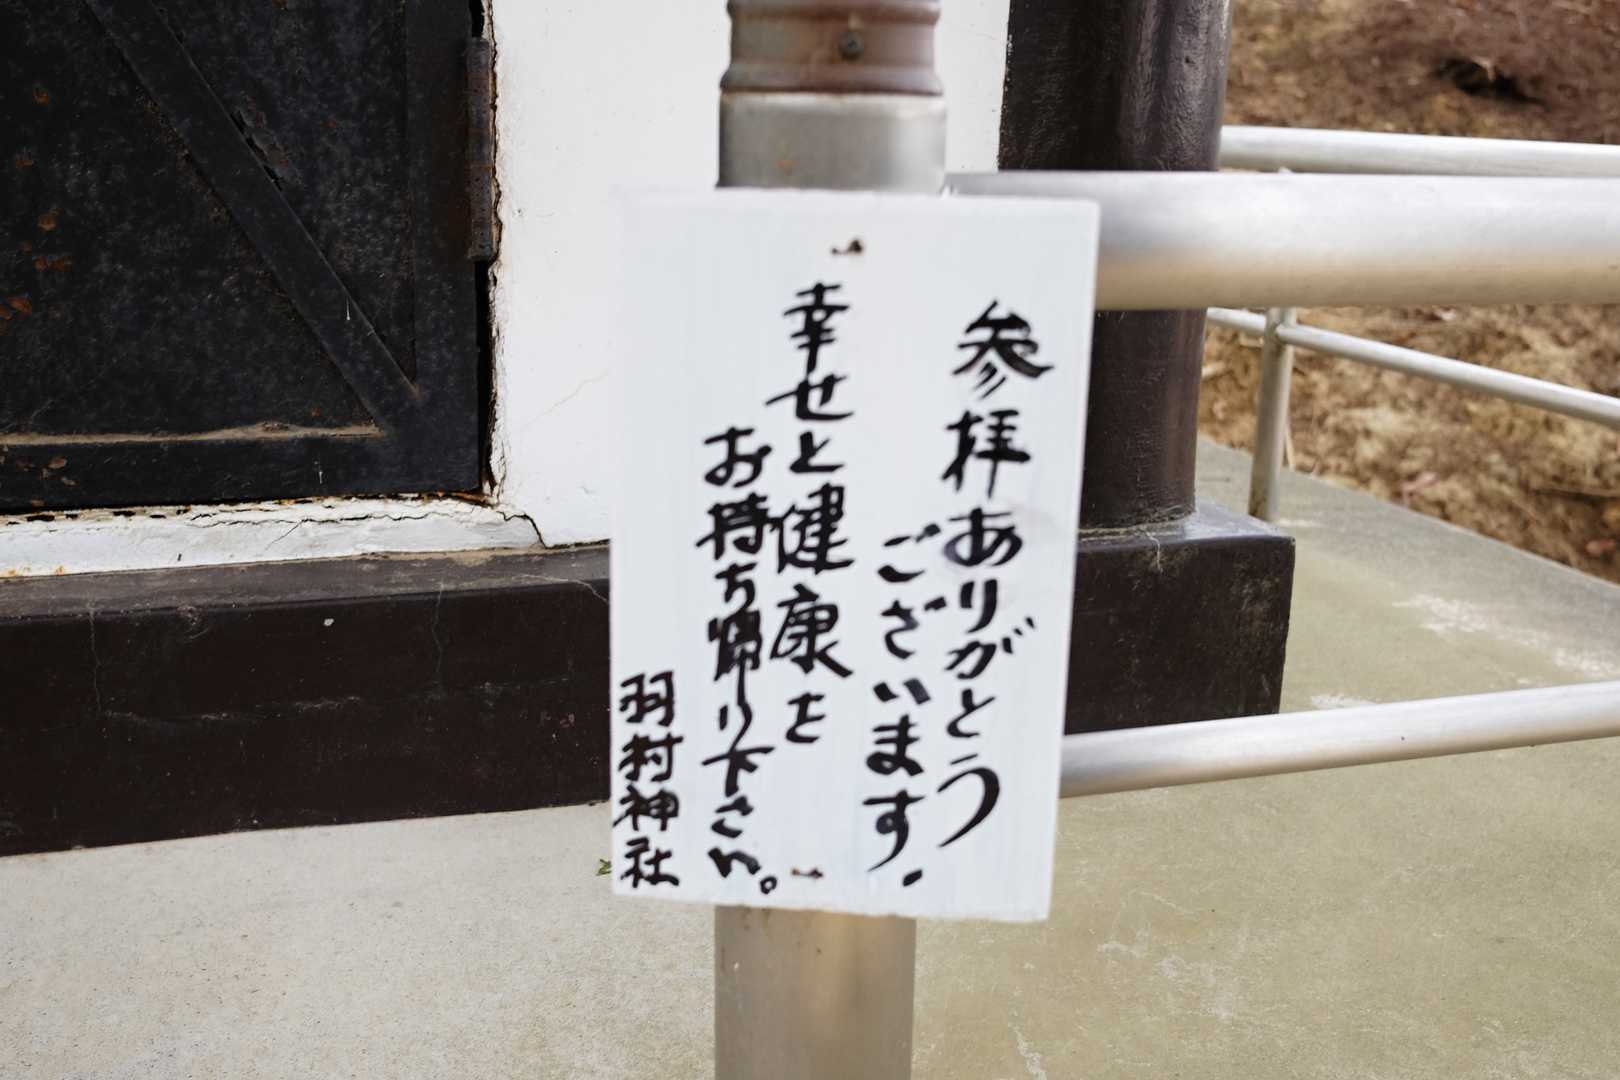 参拝ありがとう
ございます.
幸せと健康を
お持ち帰り下さい。
羽村神社